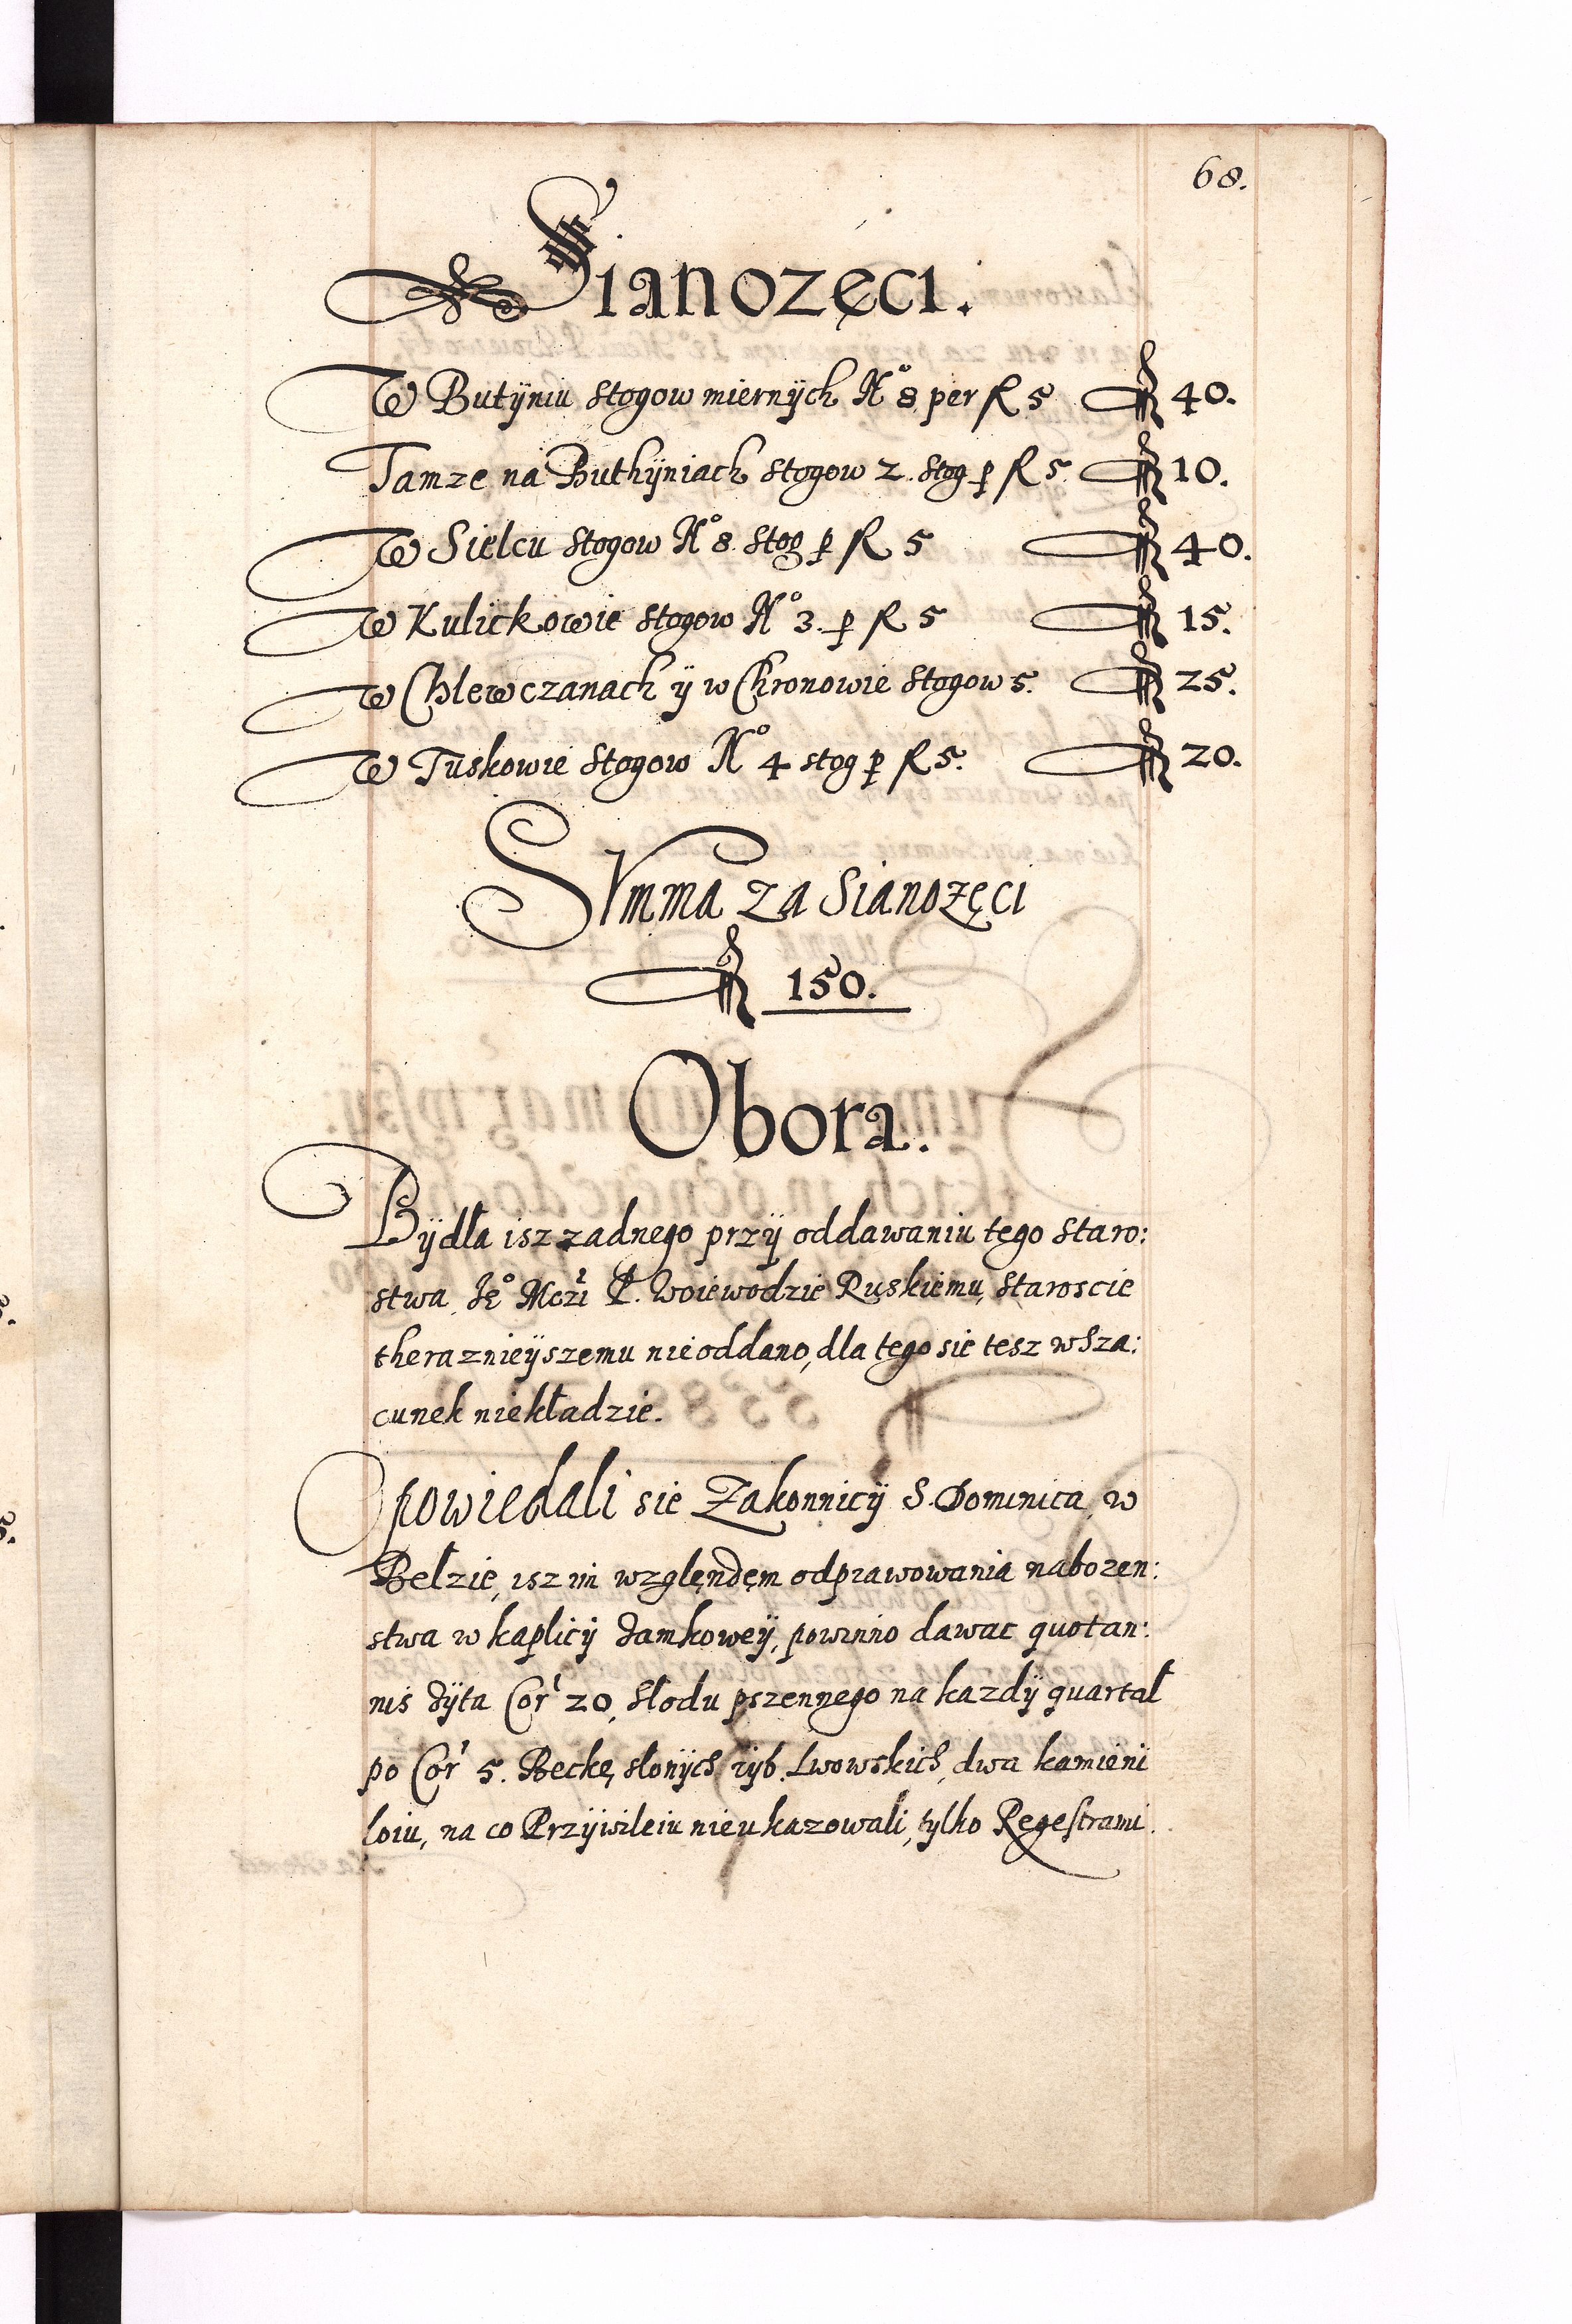 68.
Sianozęci.
W Butÿniu stogow miernÿch No 8 per fl 5 fl 40.
Tamze na Buthÿniach stogow 2. stog p fl 5. fl 10.
W Sielcu stogow No 8. stog p fl 5 fl 40.
W Kulickowie stogow No 3. p fl 5 fl 15.
W Chlewczanach ÿ w Chronowie stogow 5. fl 25.
W Tuskowie stogow No 4 stog p fl 5. fl 20.
Svmma za Sianozęci
fl 150.
Obora.
Bÿdła isz zadnego przÿ oddawaniu tego Staro:
stwa Je° Mczi P. Woiewodzie Ruskiemu, Staroscie
theraznieÿszemu nieoddano, dla tego sie tesz w Sza:
cunek niekładzie.
Opowiedali sie Zakonnicÿ S. Dominica, w
Belzie, isz im względęm odprawowania nabozen:
stwa w kaplicÿ zamkoweÿ, powinno dawac quotan:
nis zÿta Cor 20, Słodu pszennego na kazdÿ quartal
po Cor 5. Beckę słonÿch rÿb Lwowskich, dwa kamieni
loiu, na co Przÿwileiu nieukazowali, tylko Regestrami.